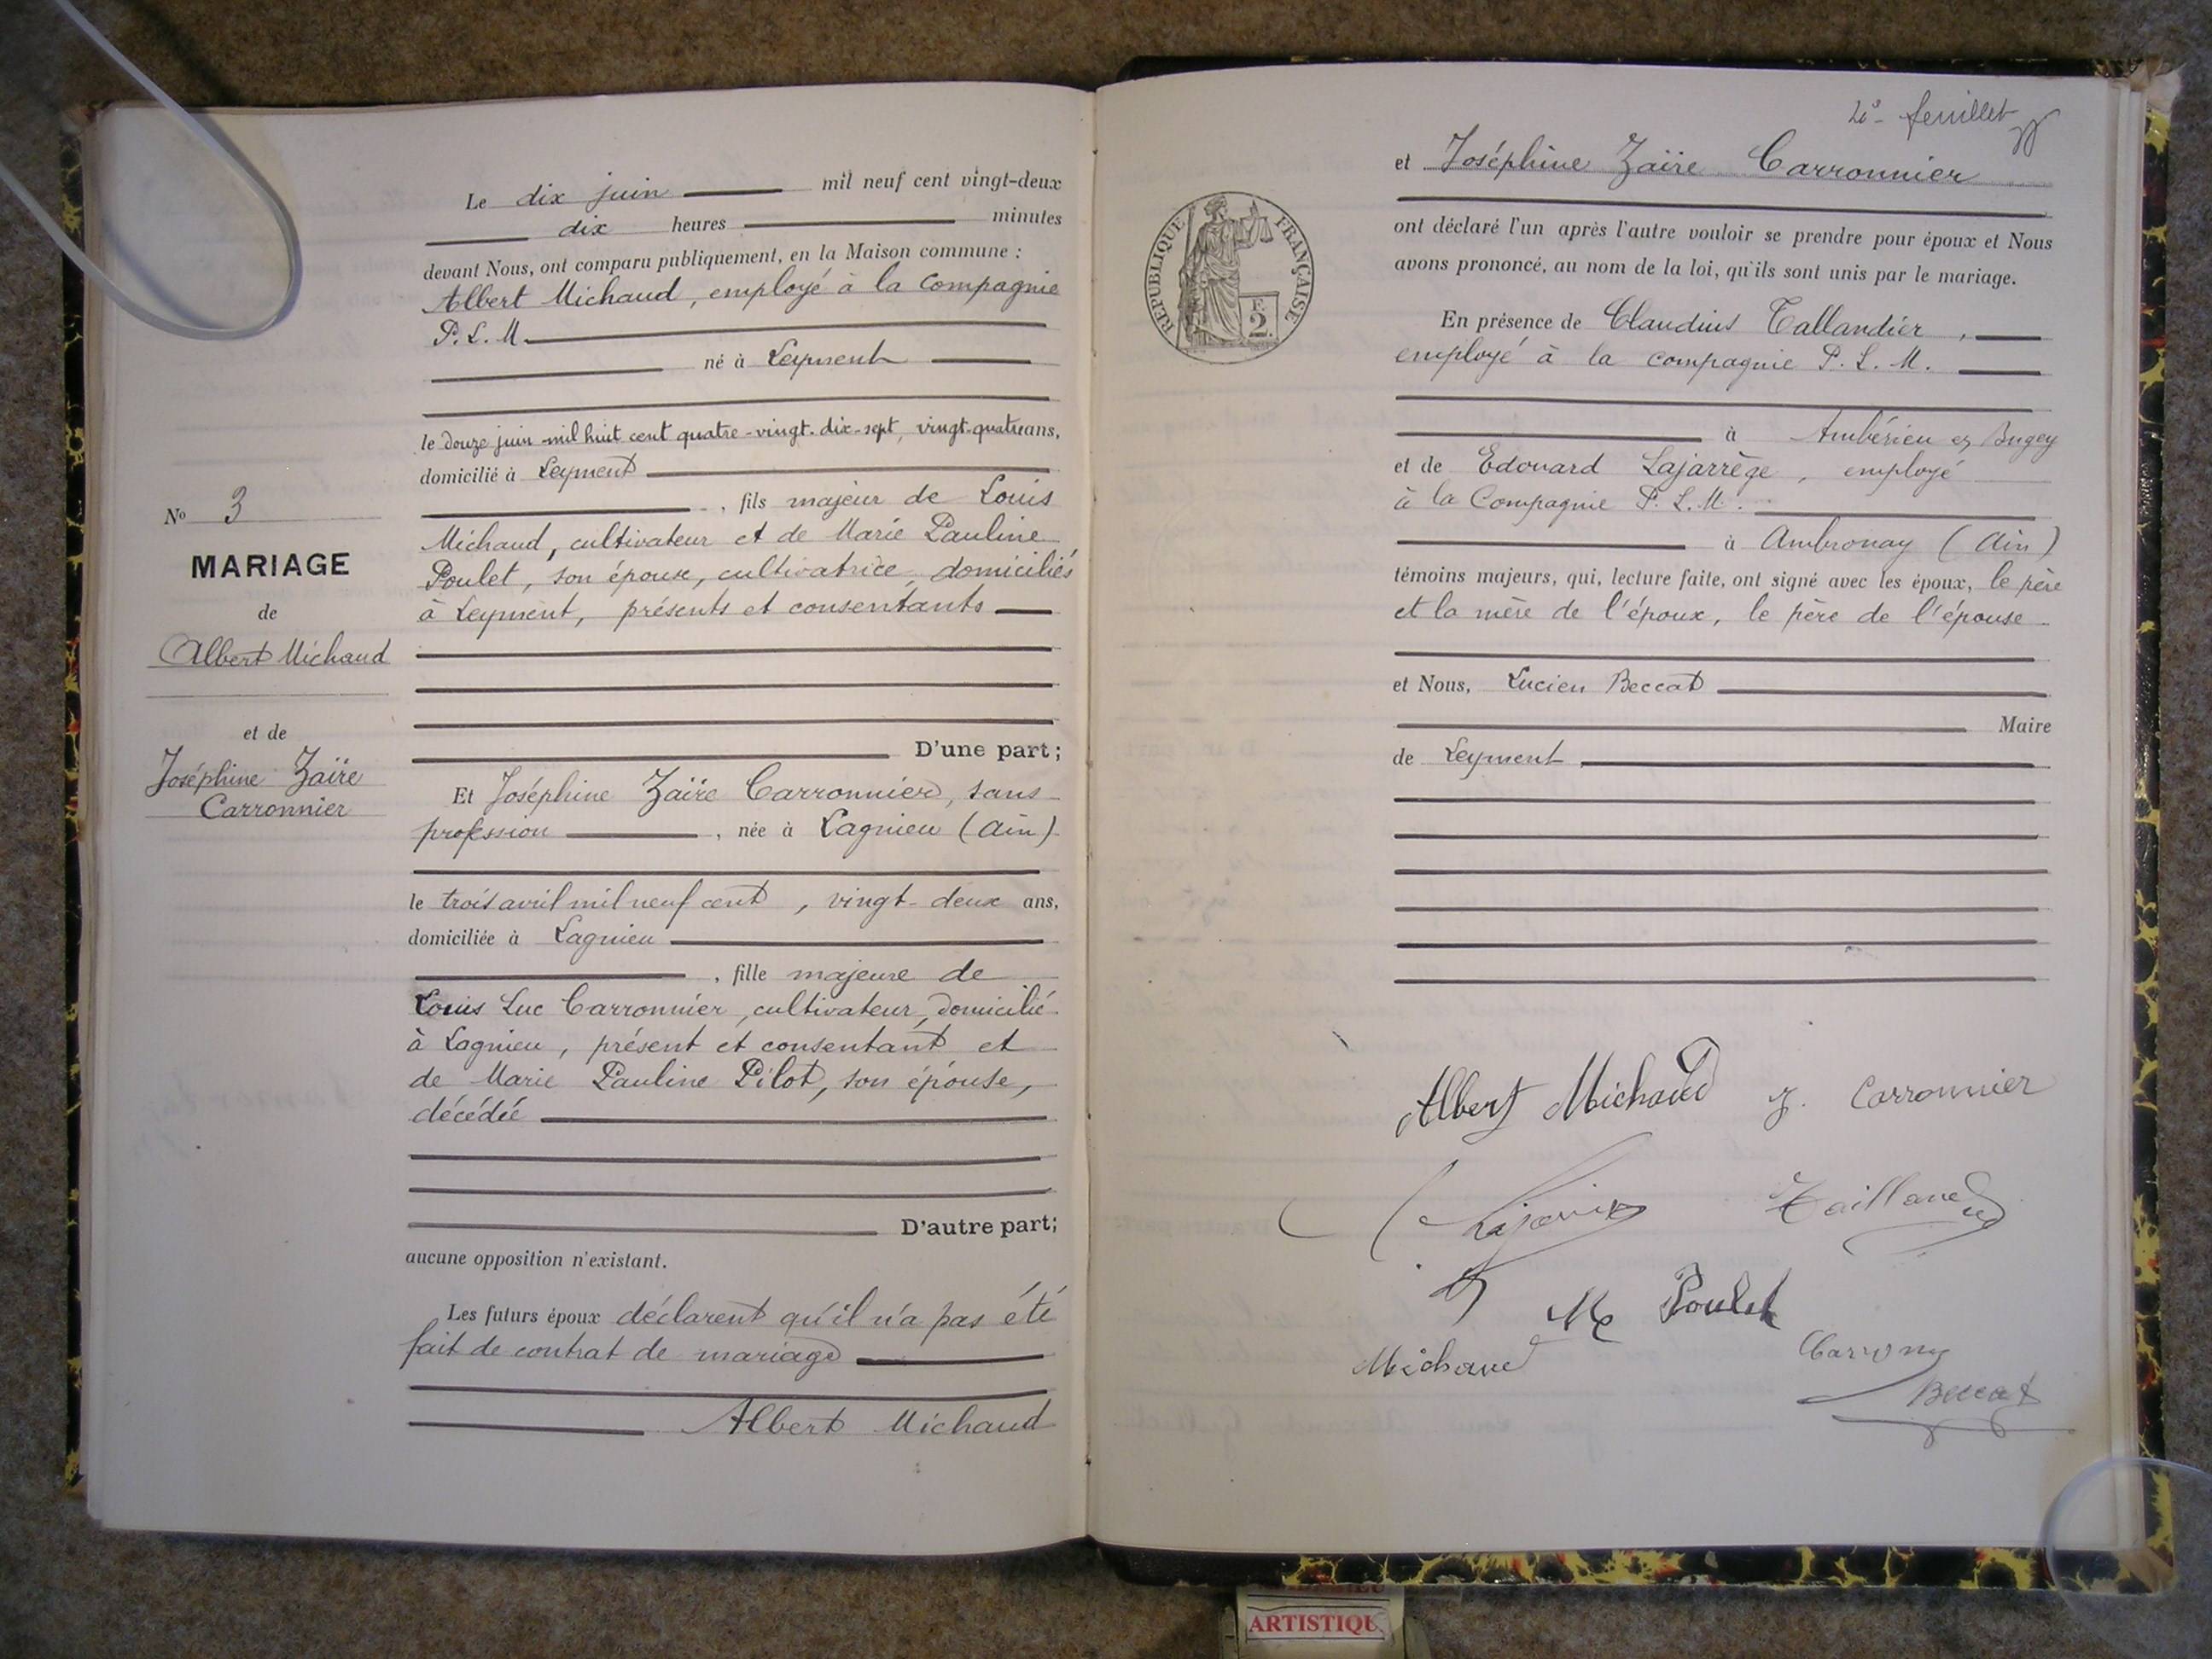 Le dix juin mil neuf cent vingt-deux
dix heures minutes
devant Nous, ont comparu publiquement, en la Maison commune :
Albert Michaud, employé à la Compagnie
P.L.M.
né à Leyment
le douze juin mil huit cent quatre-vingt-dix-sept, vingt-quatre ans,
domicilié à Leyment
, fils majeur de Louis
Michaud, cultivateur et de Marie Pauline
Poulet, son épouse, cultivatrice, domiciliés
à Leyment, présents et consentants
D'une part;
Et Joséphine Zaïre Carronnier, sans
profession , née à Lagnieu (Ain)
le trois avril mil neuf cent , vingt-deux ans,
domiciliée à Lagnieu
, fille majeure de
Louis Luc Carronnier, cultivateur, domicilié
à Lagnieu, présent et consentant et
de Marie Pauline Pilot, son épouse,
décédée
D'autre part;
aucune opposition n'existant.
Les futurs époux déclarent qu'il n'a pas été
fait de contrat de mariage
Albert Michaud
No 3
MARIAGE
de
Albert Michaud
et de
Joséphine Zaïre
Carronnier
feuillet
et Joséphine Zaïre Carronnier
RÉPUBLIQUE FRANÇAISE
F.
2.
ont déclaré l'un après l'autre vouloir se prendre pour époux et Nous
avons prononcé, au nom de la loi, qu'ils sont unis par le mariage.
En présence de Claudius Tallandier ,
employé à la compagnie P. L. M.
à Ambérieu en Bugey
et de Edouard Lajarrège , employé
à la Compagnie P. L. M.
à Ambronay (Ain)
témoins majeurs, qui, lecture faite, ont signé avec les époux, le père
et la mère de l'époux, le père de l'épouse
et Nous, Lucien Beccat
Maire
de Leyment
Albert Michaud J. Carronnier
M Poulet
Michaud
Beccat
ARTISTIQU